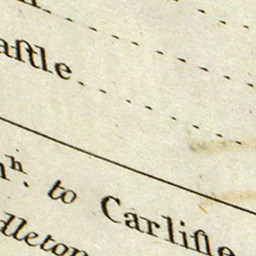 aſtle
n. to Carliſle
dleton